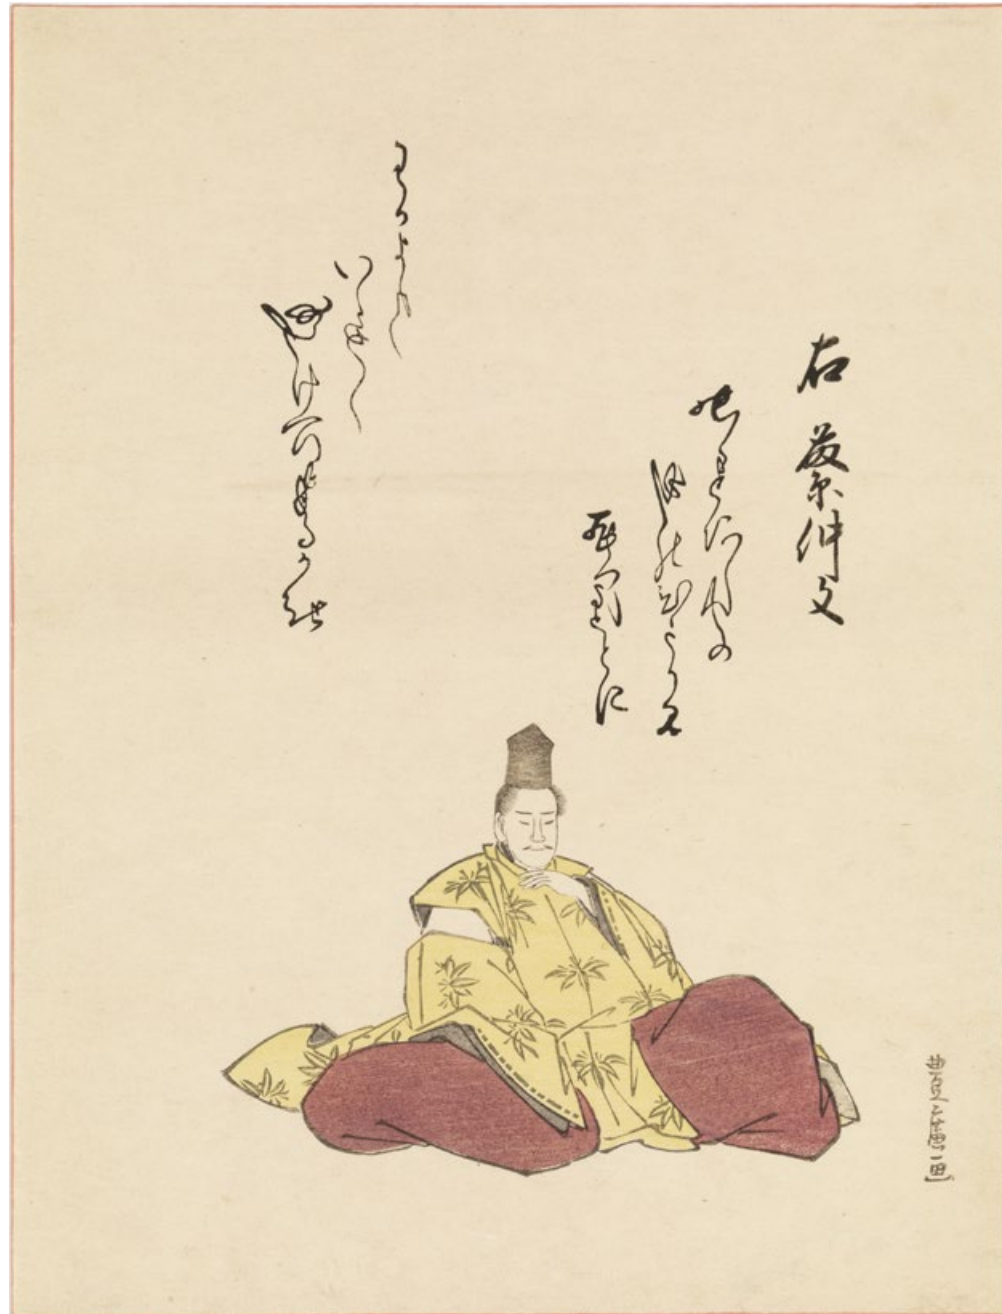 右 藤仲文
有あけの
月のひかりを
まつほとに
わかよの
いたく
ふけにけるかな
豊廣画